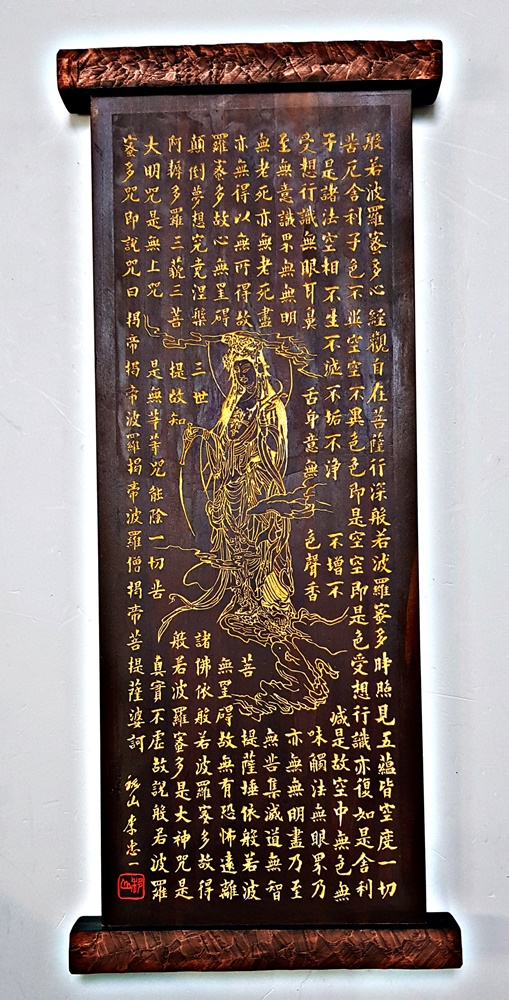 般若波羅蜜多心經觀自在菩薩行深般若波羅蜜多時照見五蘊皆空度一切
苦厄舍利子色不異空空不異色色即是空空即是色受想行識亦復如是舍利
子是諸法空相不生不滅不垢不淨不增不減是故空中無色無
受想行識無眼耳鼻舌身意無色聲香味觸法無眼界乃
至無意識界無無明亦無無明盡乃至
無老死亦無老死盡無苦集滅道無智
亦無得以無所得故菩提薩埵依般若波
羅蜜多故心無罣碍無罣碍故無有恐怖遠離
顛倒夢想究竟涅槃三世諸佛依般若波羅蜜多故得
阿耨多羅三藐三菩提故知般若波羅蜜多是大神咒是
大明咒是無上咒是無等等咒能除一切苦真實不虛故說般若波羅
蜜多咒即說咒曰揭帝揭帝波羅揭帝波羅僧揭帝菩提薩婆訶
山李忠一